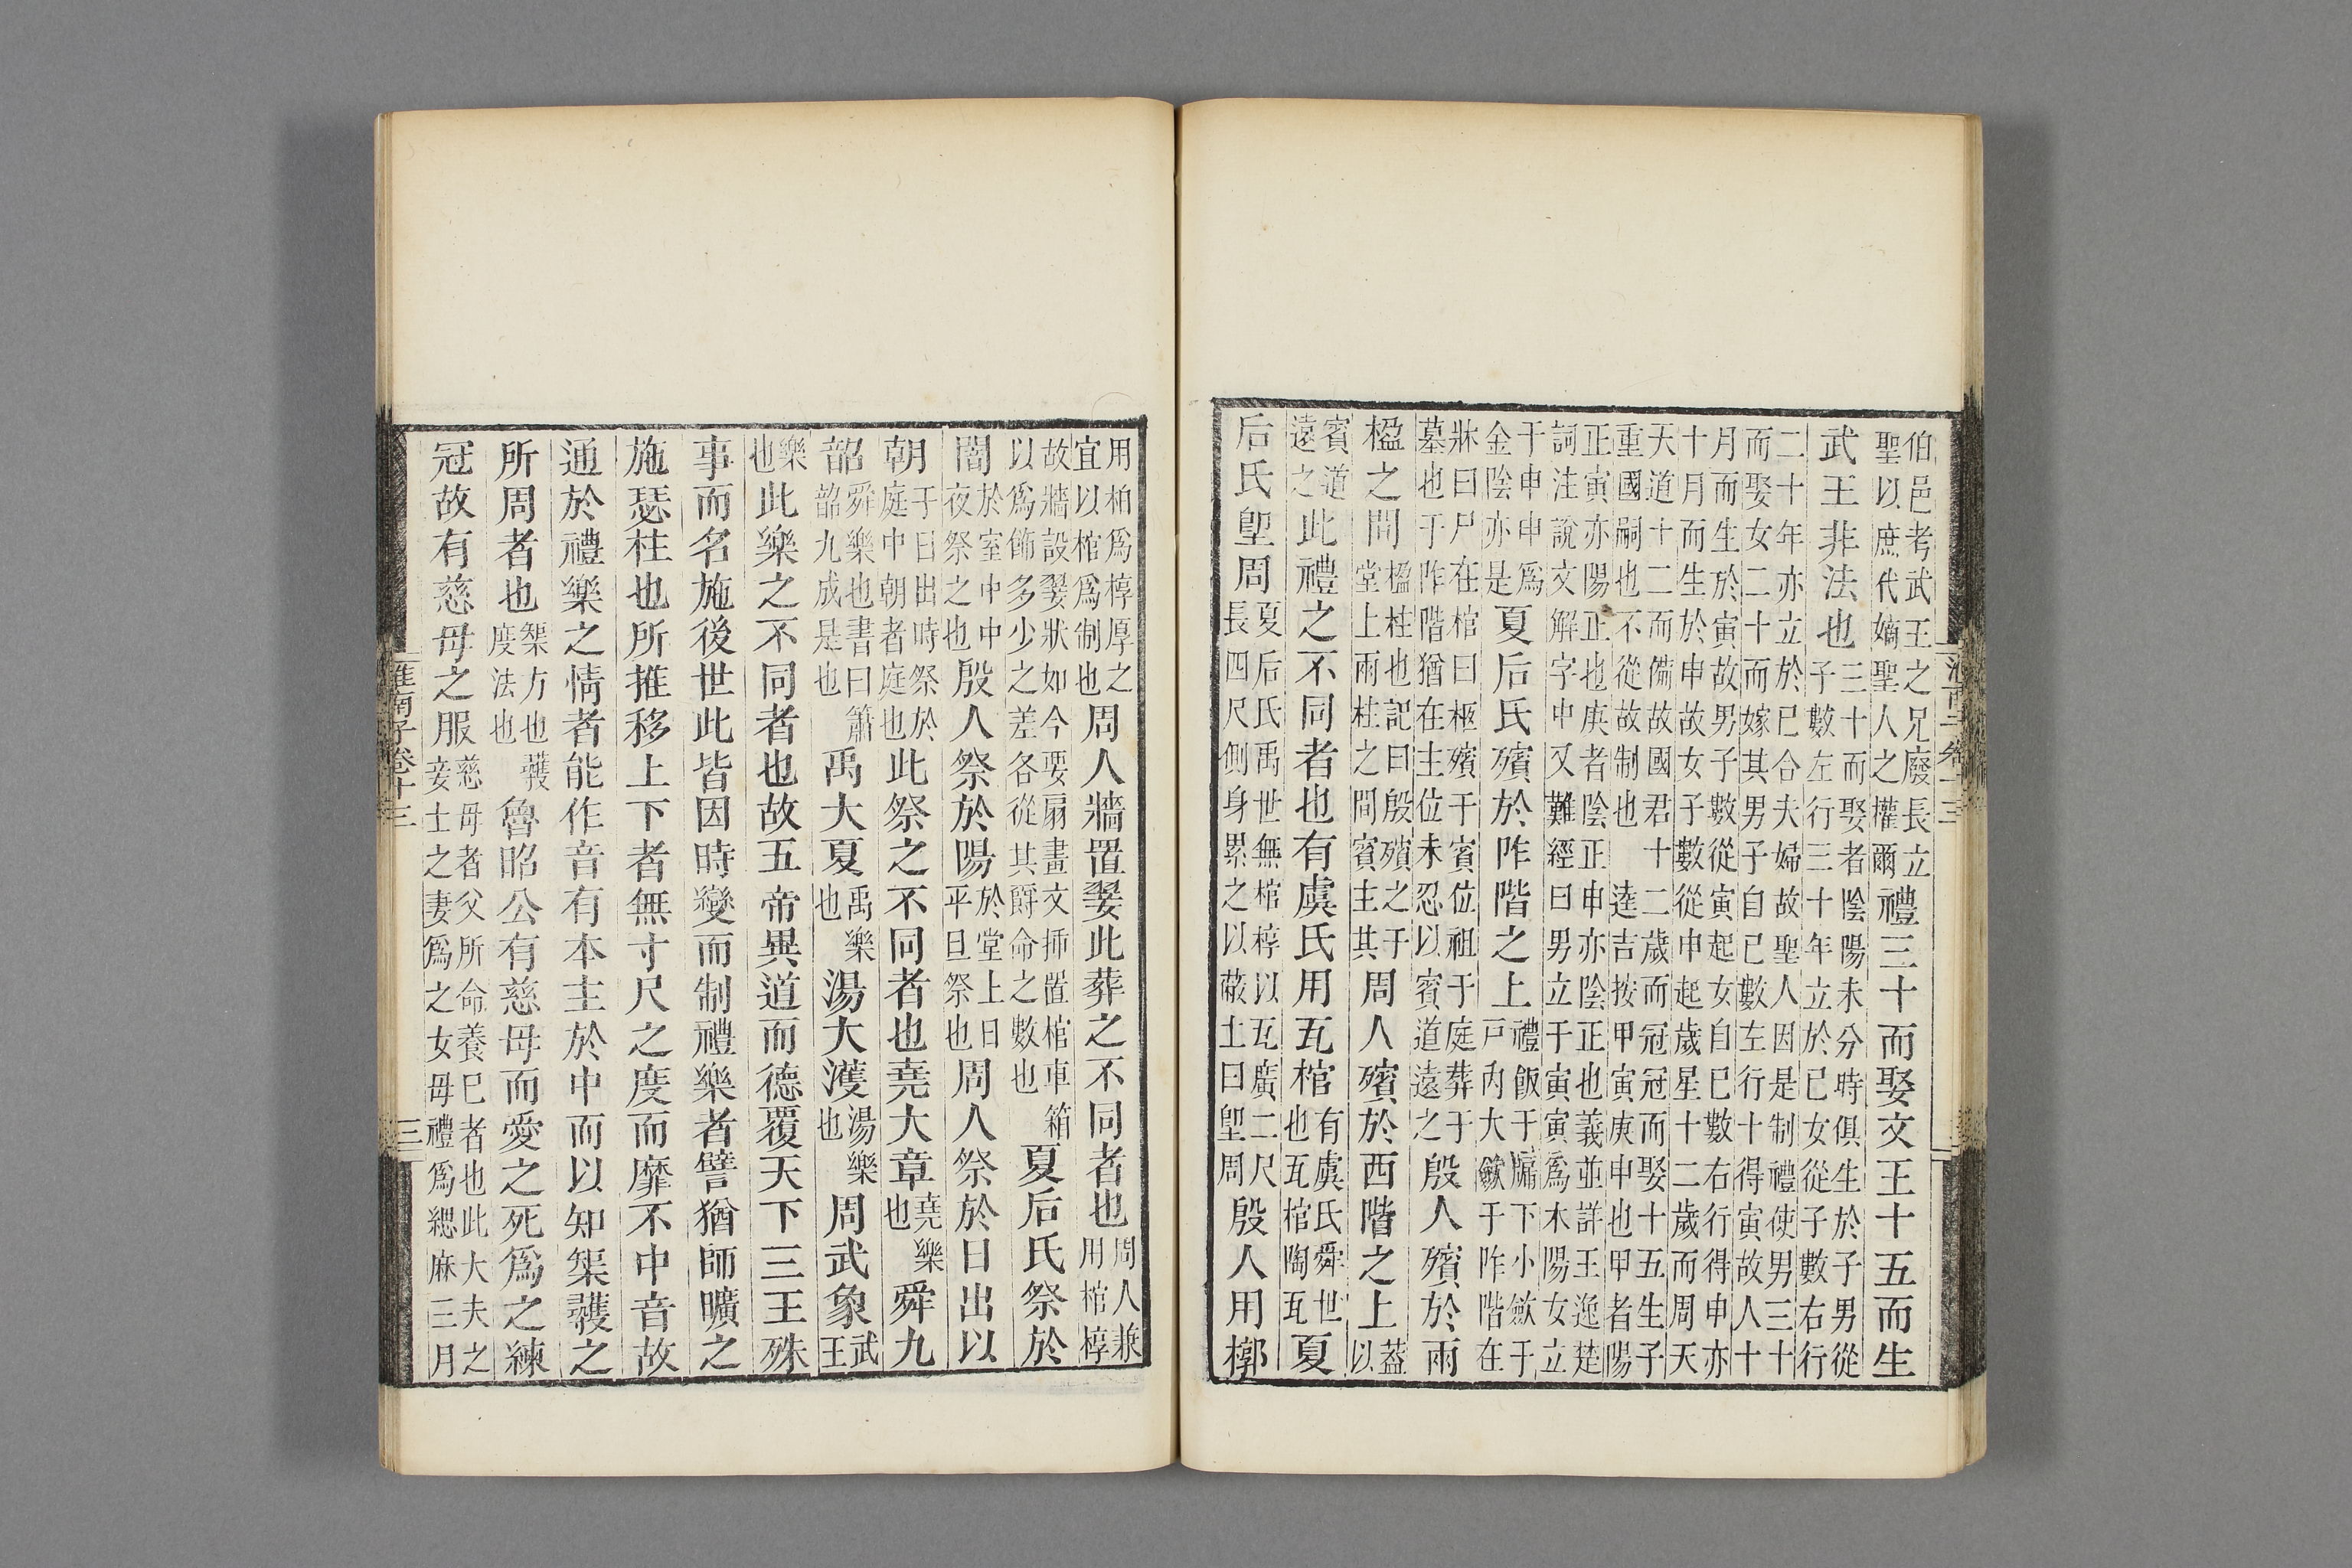 伯邑考武王之兄廢長立聖以庶代嫡聖人之權爾禮三十而娶文王十五而生
武王非法也三十而娶者陰陽未分時俱生於子男從子數左行三十年立於巳女從子數右行
二十年亦立於巳合夫婦故聖人因是制禮使男三十而娶女二十而嫁其男子自巳數左行十得寅故人十
月而生於寅故男子數從寅起女自巳數右行得申亦十月而生於申故女子數從申起歲星十二歲而周天
天道十二而備故國君十二歲而冠冠而娶十五生子重國嗣也不從故制也逵吉按甲寅庚申也甲者陽
正寅亦陽正也庚者陰正申亦陰正也義並詳王逸楚詞注說文解字中又難經曰男立于寅寅爲木陽女立
于申申爲金陰亦是夏后氏殯於阼階之上禮飯于牖下小斂于戸內大斂于阼階在
牀曰尸在棺曰柩殯于賓位祖于庭葬于墓也于阼階猶在主位未忍以賓道遠之殷人殯於兩
楹之間楹柱也記曰殷殯之于堂上兩柱之間賓主共周人殯於西階之上蓋以
賓道遠之此禮之不同者也有虞氏用瓦棺有虞氏舜世也瓦棺陶瓦夏
后氏堲周夏后氏禹世無棺椁以瓦廣二尺長四尺側身累之以蔽土曰堲周殷人用槨
淮南子卷十三
用柏爲椁厚之宜以棺爲制也周人牆置翣此葬之不同者也周人兼用棺椁
故牆設翣狀如今要扇畫文插置棺車箱以爲飾多少之差各從其爵命之數也夏后氏祭於
闇於室中中夜祭之也殷人祭於陽於堂上日平旦祭也周人祭於日出以
朝于日出時祭於庭中朝者庭也此祭之不同者也堯大章堯樂也舜九
韶舜樂也書曰簫韶九成是也禹大夏禹樂也湯大濩湯樂也周武象武王
樂也此樂之不同者也故五帝異道而德覆天下三王殊
事而名施後世此皆因時變而制禮樂者譬猶師曠之
施瑟柱也所推移上下者無寸尺之度而靡不中音故
通於禮樂之情者能作音有本主於中而以知榘彠之
所周者也榘方也彠度法也魯昭公有慈母而愛之死爲之練
冠故有慈母之服慈母者父所命養已者也此大夫之妾士之妻爲之女母禮爲緦麻三月
淮南子卷十三
三